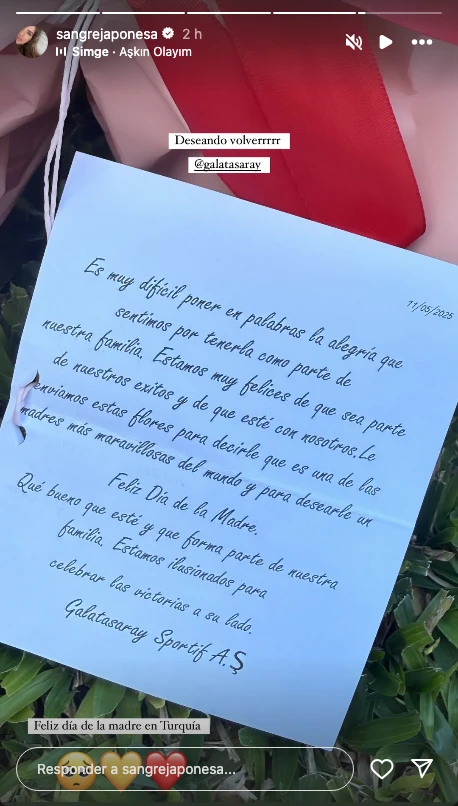 sangrejaponesa 2 h
Simge • Aşkın Olayım
Deseando volverrrrr
@galatasaray
11/05/2025
Es muy difícil poner en palabras la alegría que
sentimos por tenerla como parte de
nuestra familia. Estamos muy felices de que sea parte
de nuestros exitos y de que esté con nosotros.Le
enviamos estas flores para decirle que es una de las
madres más maravillosas del mundo y para desearle un
Feliz Día de la Madre.
Qué bueno que esté y que forma parte de nuestra
familia. Estamos ilusionados para
celebrar las victorias a su lado.
Galatasaray Sportif A.Ş
Feliz día de la madre en Turquía
Responder a sangrejaponesa...